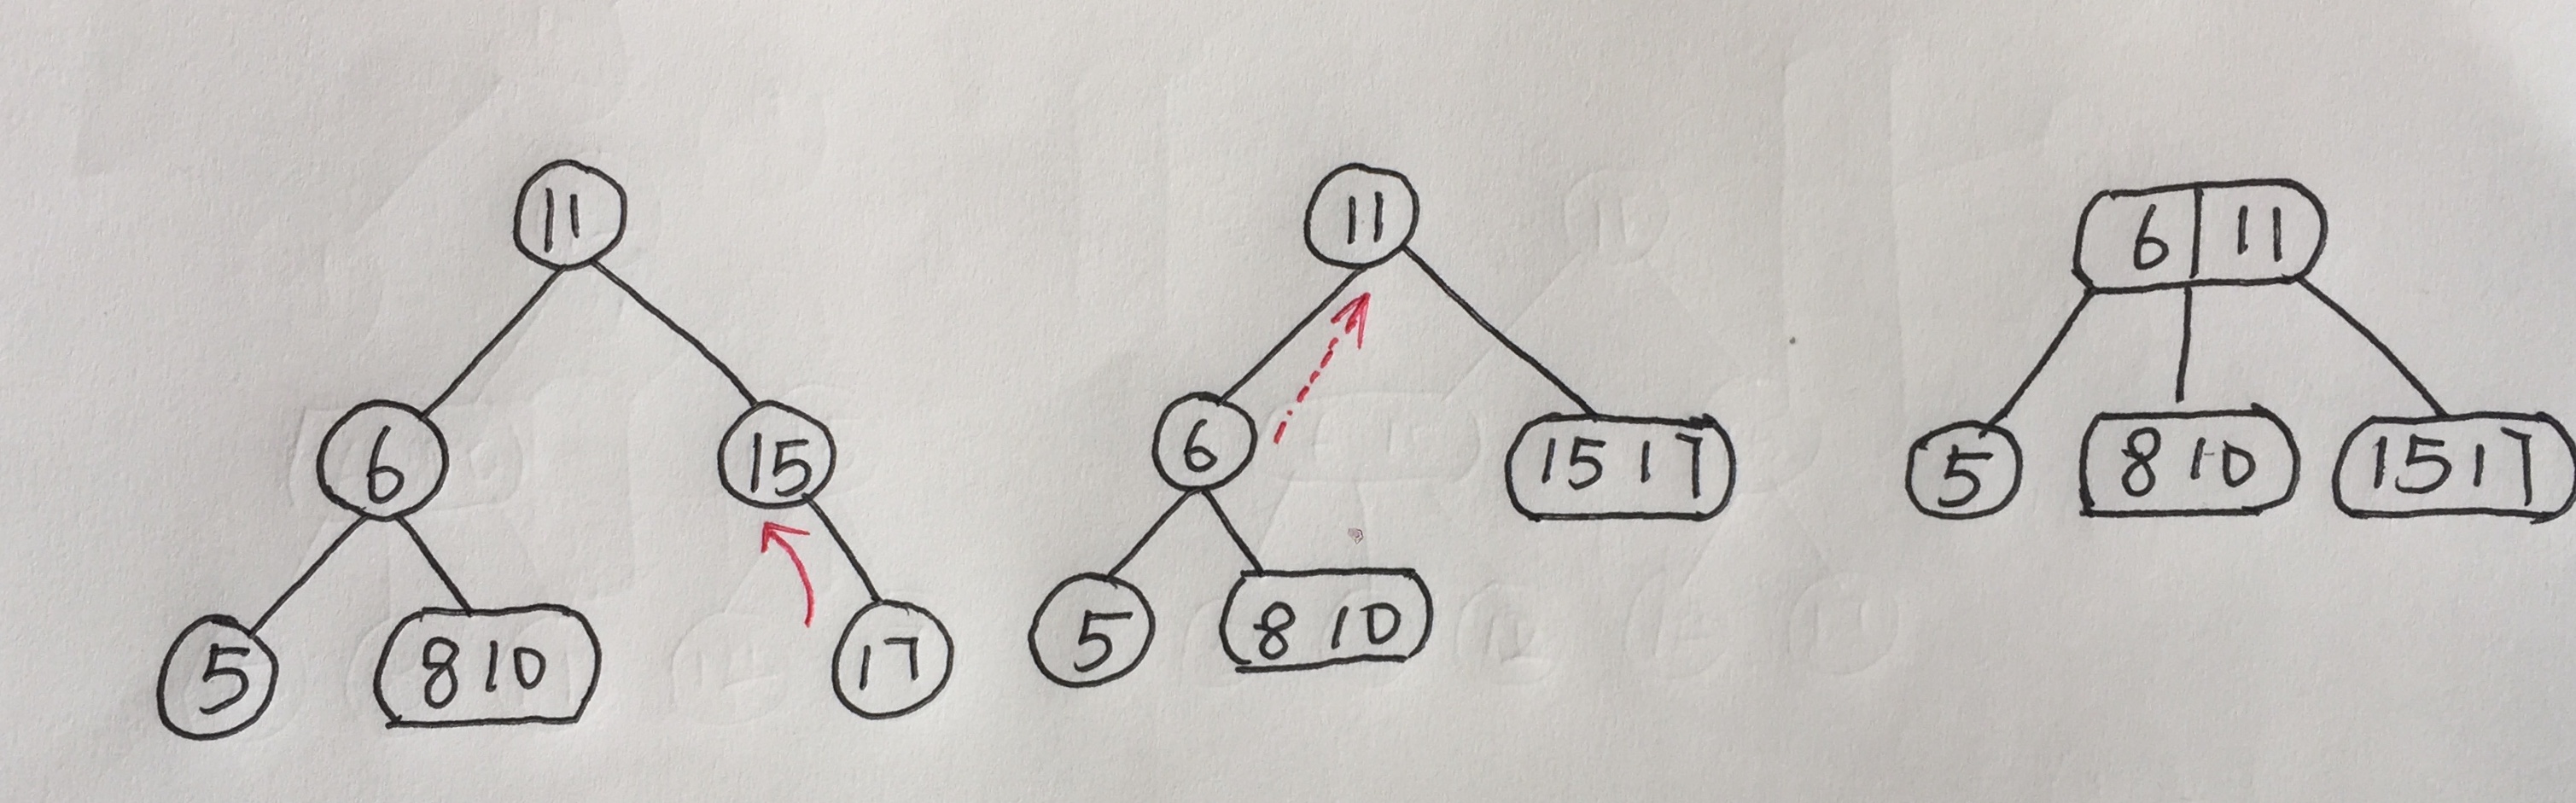 11
6
15
5
8 10
17
11
6
15 17
5
8 10
6 11
5
8 10
15 17